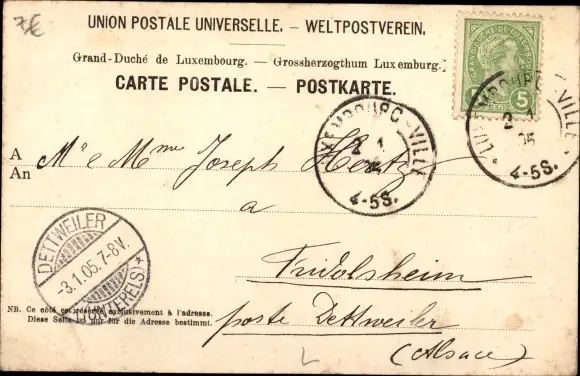 7€
UNION POSTALE UNIVERSELLE. — WELTPOSTVEREIN.
Grand-Duché de Luxembourg. — Grossherzogthum Luxemburg.
CARTE POSTALE. — POSTKARTE.
5
LUXEMBOURG-VILLE
2 1
05
4-5S.
LUXEMBOURG-VILLE
2 1
05
4-5S.
A
An
Mr e Mme Joseph Hertz
a
Fridolsheim
poste Dettweiler
(Alsace)
DETTWEILER
-3.1.05.7-8V.
(UNTERELS.)
NB. Ce côté est réservé exclusivement à l'adresse.
Diese Seite ist nur für die Adresse bestimmt.
L